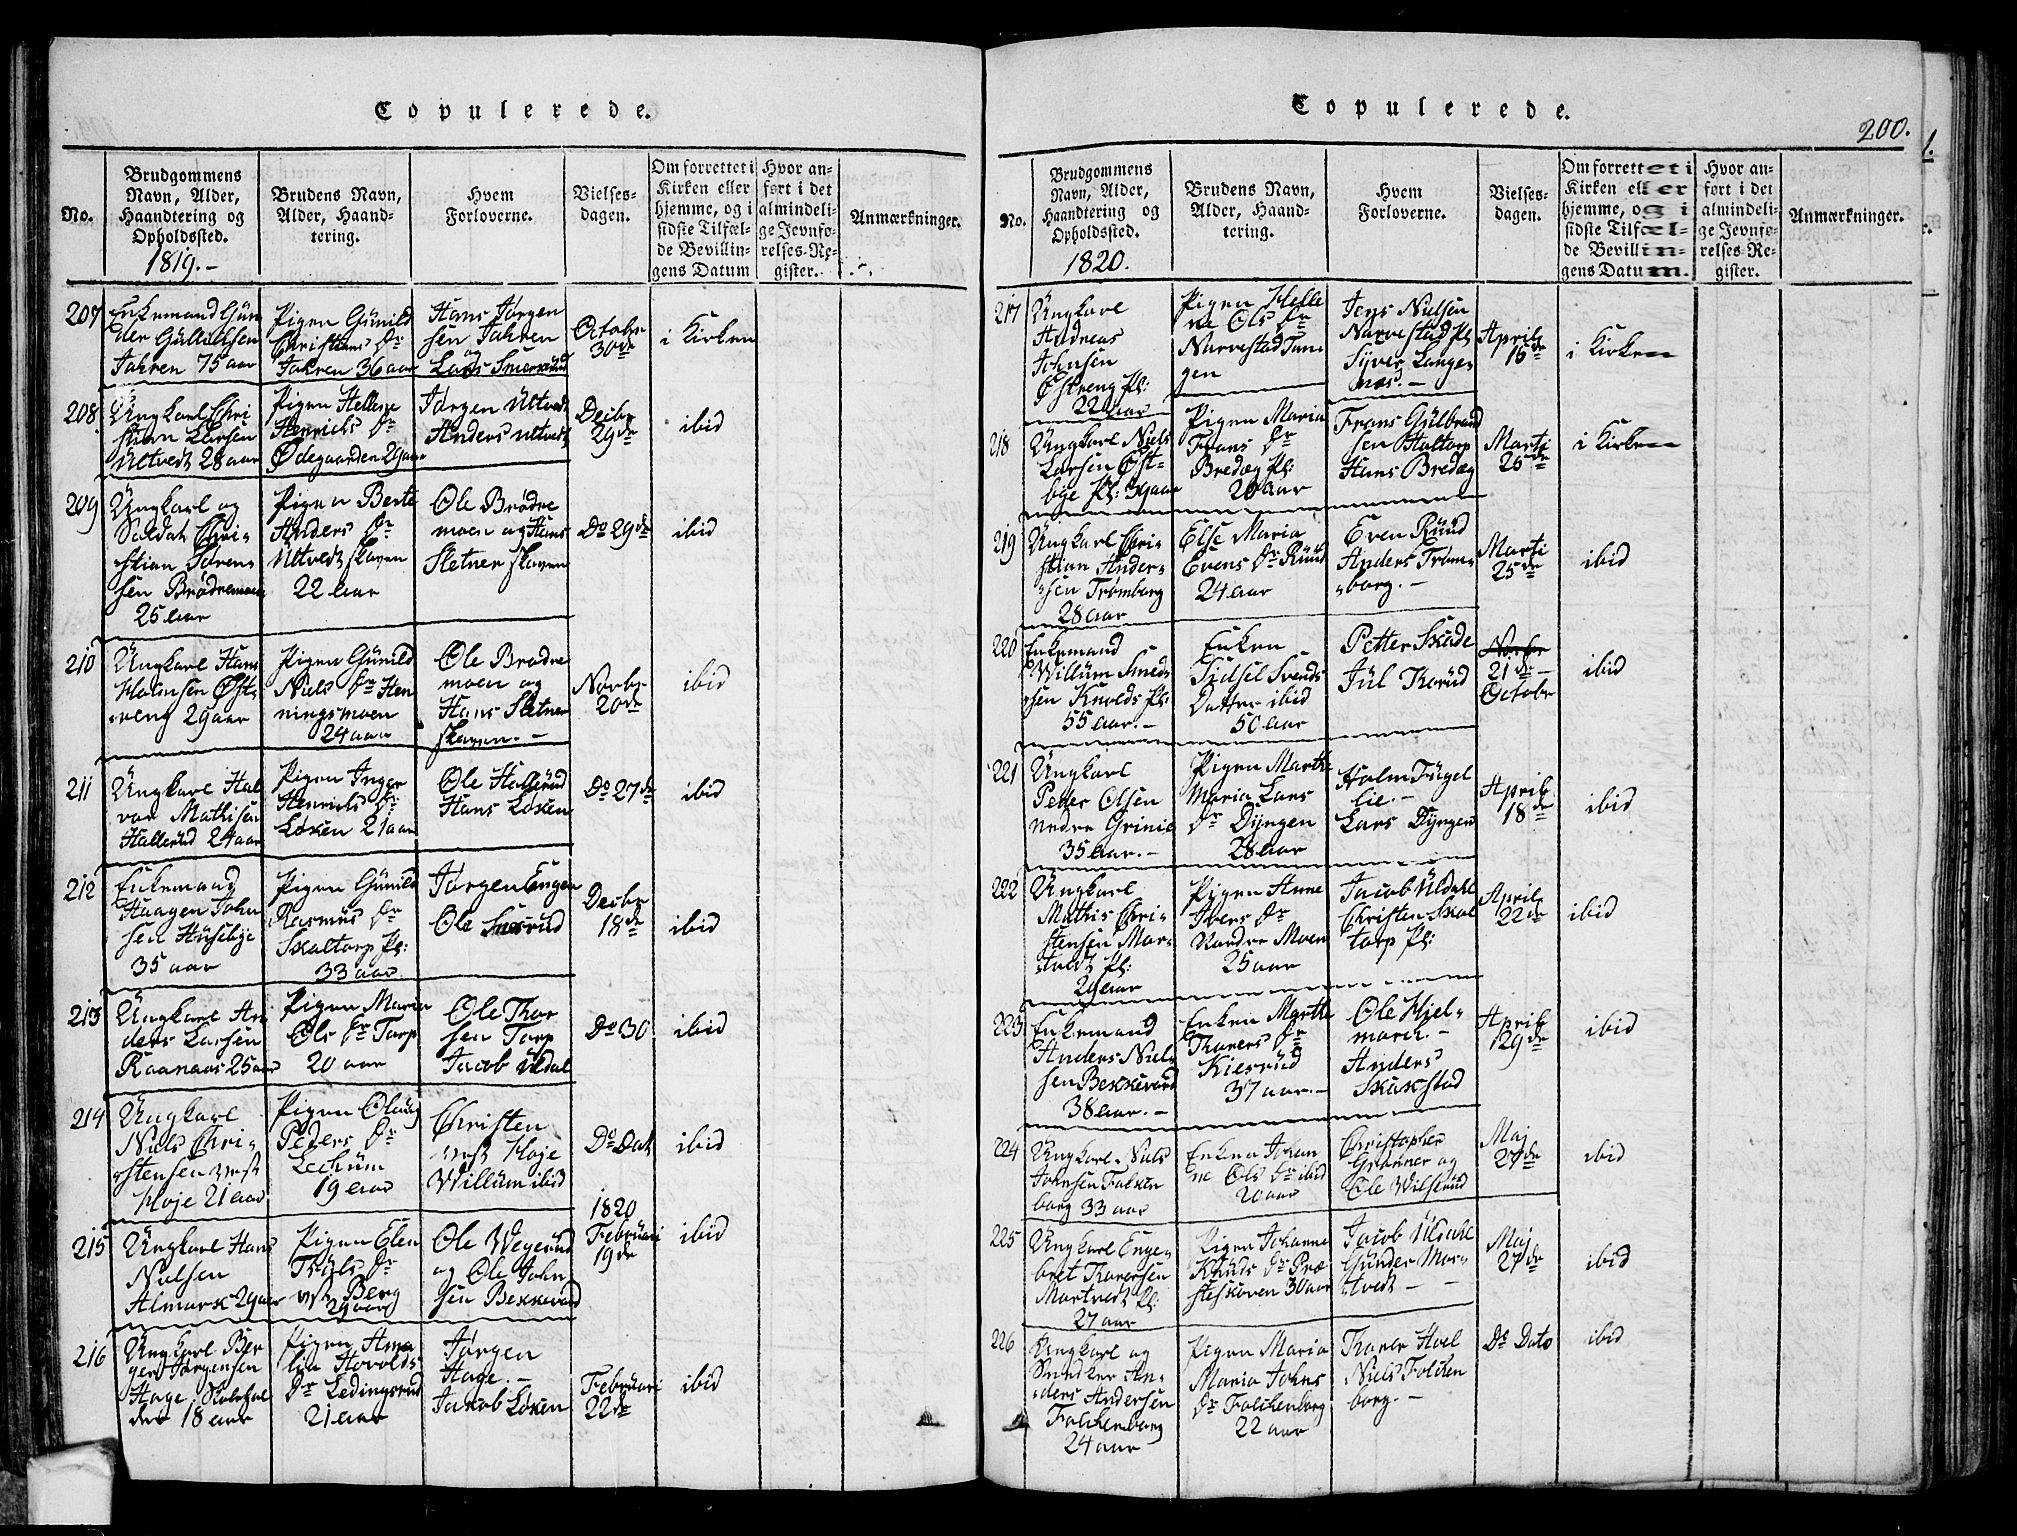 Copulerede.
No.
Brudgommens
Navn, Alder,
Haandtering og
Opholdssted.
1819.-
Brudens Navn,
Alder, Haand-
tering.
Hvem
Forloverne.
Vielses-
dagen.
Om forrettet i
Kirken eller
hjemme, og i
sidste Tilfæl-
de Bevillin-
gens Datum
Hvor an-
ført i det
almindeli-
ge Jevnfø-
relses-Re-
gister.
Anmærkninger.
207
Enkemand Gun
der Gulvelsen
Jahren 75 aar
Pigen Gunild
Christians Dr
Jahren 36 aar
Hans Jørgen
sen Jahren
og
Lars Smerud
Octobr
30de
i Kirken
208
Ungkarl Chri
stian Larsen
Ultvedt 28 aar
Pigen Hellene
Henrichs Dr
Ødegaarden 29 aar
Jørgen Ultvedt
Anders Ultvedt
Decbr
29de
ibid
209
Ungkarl og
Soldat Chri-
stian Sören-
sen Brödremoen
25 aar
Pigen Berte
Anders Dr
Ultvedt skoven
22 aar
Ole Brödre
moen og Hans
Sletner skoven
Do 29de
ibid
210
Ungkarl Hans
Holmsen Øst-
reng 29 aar
Pigen Gunild
Niels Dr Hen
ningsmoen
24 aar
Ole Brodre
moen og
Hans Sletner
skoven.-
Novbr
20de
ibid
211
Ungkarl Hal
vor Mathisen
Hallerud 24 aar
Pigen Inger
Henrichs Dr
Løken 21 aar
Ole Hallerud
Hans Løken
Do 27de
ibid
212
Enkemand
Haagen John
sen Husebye
35 aar
Pigen Gunild
Rasmus Dr
Skaltorp Pl:
33 aar.
Jørgen Engen
Ole Smerud
Decbr
18de
ibid
213
Ungkarl An
ders Larsen
Raanaas 25 aar
Pigen Maria
Ols Dr Torp
20 aar
Ole Thor
sen Torp
Jacob Uldal
Do 30
ibid
214
Ungkarl
Niels Chri-
stensen vest
Hoje 21 aar
Pigen Oloug
Peders Dr
Lechum
19 aar
Christen
vest Hoje
Willum ibid
Do Dat
ibid
215
Ungkarl Hans
Nielsen
Almark 29 aar
Pigen Elen
Truls Dr
Berg
29 aar
Ole Wegerud
og Ole John
sen Bekkevard
1820
Februari
19de
ibid
216
Ungkarl Ber
ger Jørgensen
Hage Skolehol
der 18 aar
Pigen Ama
lia Hovolds
Dr Ledingsrud
21 aar
Jørgen
Hage.-
Jakob Løken
Februari
22de
ibid
Copulerede.
200.
No.
Brudgommens
Navn, Alder,
Haandtering og
Opholdssted.
1820.
Brudens Navn,
Alder, Haand-
tering.
Hvem
Forloverne.
Vielses-
dagen.
Om forrettet i
Kirken eller
hjemme, og i
sidste Tilfæl-
de Bevillin-
gens Datum.
Hvor an-
ført i det
almindeli-
ge Jevnfø-
relses-Re-
gister.
Anmærkninger.
217
Ungkarl
Andreas
Johnsen
Østreng Pl:
22 aar
Pigen Helle
ne Ols Dr
Narvestad Tan
gen
Jens Nielsen
Narvestad Pl
Syver Lange
næs.-
April
16de
i Kirken
218
Ungkarl Niels
Larsen Øst-
bye Pl: 34 aar
Pigen Maria
Frans Dr
Bredeg Pl:
20 aar
Frans Gulbrand
sen Haltorp
Hans Bredeg
Marti
25de
i Kirken
219
Ungkarl Chri-
stian Ander-
sen Trømborg
28 aar
Else Maria
Evens Dr Ruud
24 aar
Even Ruud
Anders Trøm-
borg.-
Marti
25de
ibid
220
Enkemand
Willum Smed
sen Knolds Pl:
55 aar.-
Enken
Sidsel Svends
Datter ibid
50 aar
Petter Skude
Jul Korud
Novbr
21de-
Octobr
ibid
221
Ungkarl
Peder Olsen
nedre Grinie
35 aar.-
Pigen Marthe
Maria Lars
Dr Dyngen
28 aar
Holm Fugel
lie.-
Lars Dyngen
April
18de
ibid
222
Ungkarl
Mathis Chri-
stensen Mor-
tvedt Pl:
29 aar
Pigen Anne
Ivers Dr
Nordre Moen
25 aar
Jacob Uldahl
Christen Skal
torp Pl:
April
22de
ibid
223
Enkemand
Anders Niel-
sen Bekkevard
38 aar.-
Enken Marthe
Thorers Dr
Kiesrud
37 aar.-
Ole Hiel-
mark.-
Anders
Skakstad
April
29de
ibid
224
Ungkarl Niels
Johnsen Falken
borg 33 aar
Enken Johan
ne Ols Dr ibid
20 aar
Christopher
Grønner og
Ole Wilsrud
Maj
27de
ibid
225
Ungkarl Enge-
bret Thorersen
Mortvedt Pl:
27 aar
Pigen Johanne
Knuds Dr Præ
steskoven 30 aar
Jacob Uldahl
Gunder Mor-
tvedt -
Maj
27de
ibid
226
Ungkarl og
Snedker An-
ders Andersen
Folchenborg
24 aar
Pigen Maria
Maria Johns
Dr Folchenborg
22 aar
Thorer Hoel
Niels Folchen
borg.-
Do Dato
ibid